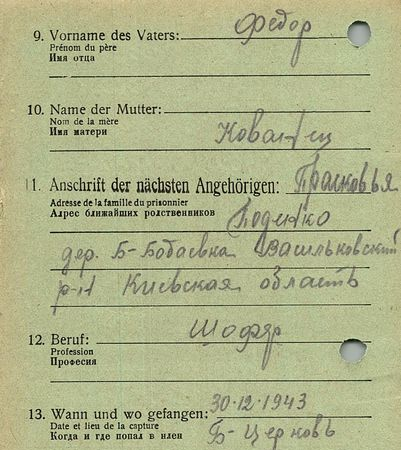 9. Vorname des Vaters: Федор
Prénom du père
Имя отца
10. Name der Mutter:
Nom de la mère
Имя матери
11. Anschrift der nächsten Angehörigen: Прасковья
Adresse de la famille du prisonnier
Адрес ближайших родственников
дер. Б- Васильковский
р-н Киевская область
12. Beruf: Шофер
Profession
Професия
13. Wann und wo gefangen: 30.12.1943
Date et lieu de la capture
Когда и где попал в плен Б-Церковь